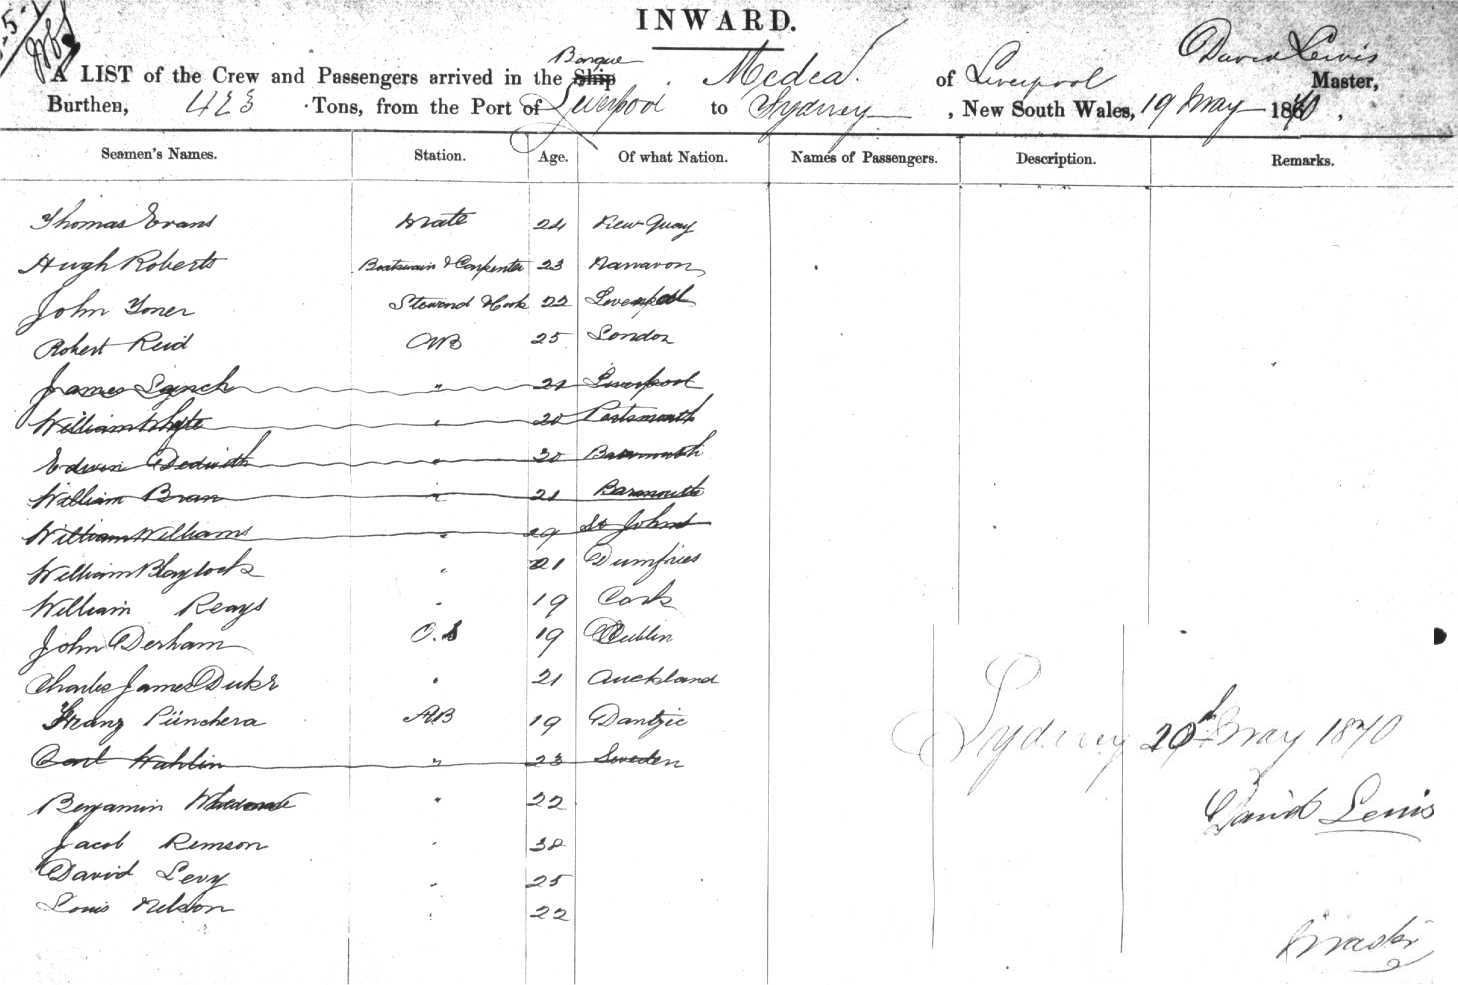 INWARD.
Barque
David Lewis
A LIST of the Crew and Passengers arrived in the Ship Medea. of Liverpool Master,
Burthen, 423 Tons, from the Port of Liverpool to Sydney, New South Wales, 19 May 1870,
Seamen's Names. Station. Age. Of what Nation. Names of Passengers. Description. Remarks.
Thomas Evans Mate 24 New Quay
Hugh Roberts Boatswain & Carpenter 23
John Toner Steward & Cook 22 Liverpool
Robert Reid AB 25 London
James Lynch " 21 Liverpool
William Whyte " 20 Portsmouth
Edwin " 20 Barmouth
William Bran " 21 Barmouth
William Williams " 29 St Johns
William Blaylock " 21 Dumfries
William Reays " 19 Cork
John Derham O.S 19 Dublin
Charles James Duke " 21 Auckland
Franz AB 19 Dantzic
Carl Wahlin " 23 Sweden
Benjamin " 22
Jacob Remson " 38
David Levy " 25
Louis Nelson " 22
Sydney 20th May 1870
David Lewis
Master